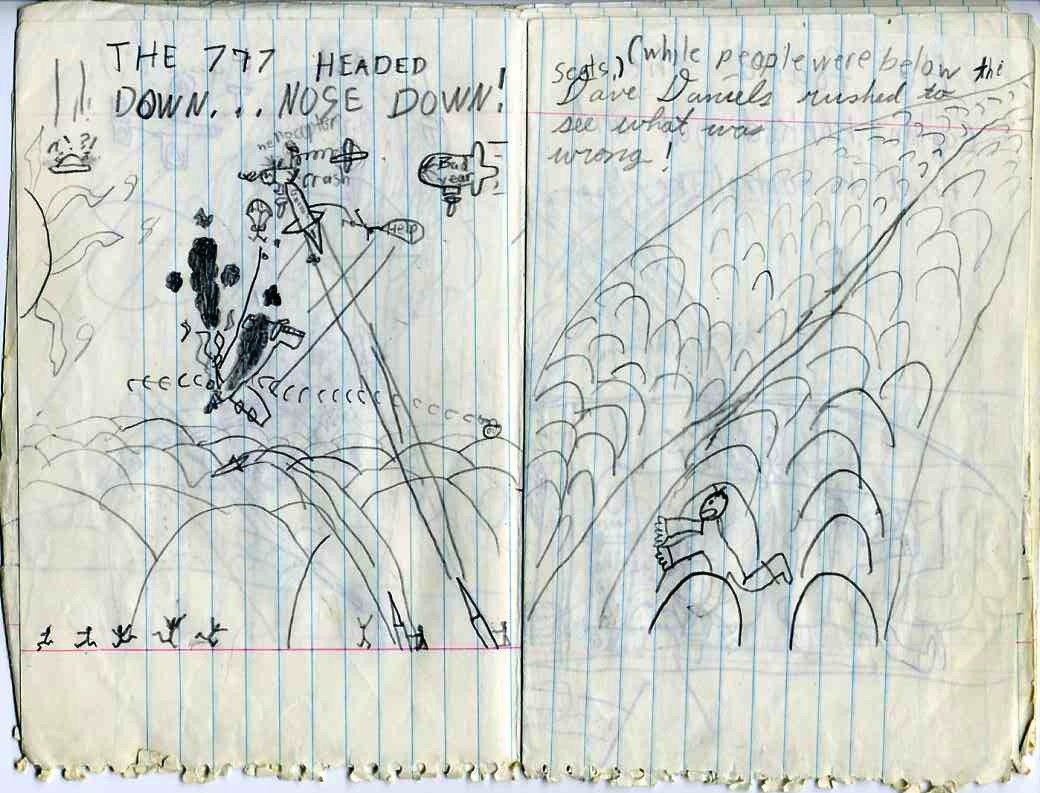 THE 777 HEADED
DOWN... NOSE DOWN!
helacopter
crash
Bad
year
Help
(while people were below the
seats,)
Dave Daniels rushed to
see what was
wrong!